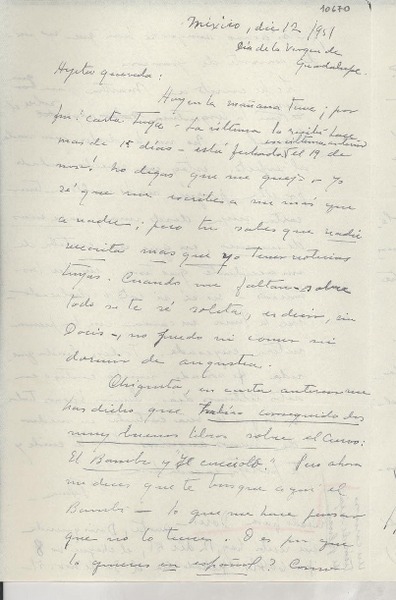 10670
México, dic 12/951
Día de la Virgen de
Guadalupe.
Hijita querida:
Hoy en la mañana tuve ¡por
fin! carta tuya. La última la recibí hace
más de 15 días - está fechada el 19 de
nov. No digas que me quejo. Yo
sé que me escribes a mí más que
a nadie; pero tú sabes que nadie
necesita mas que yo tener noticias
tuyas. Cuando me faltan, sobre
todo si te sé solita, es decir, sin
Doris -, no puedo ni comer ni
dormir de angustia.
Chiquita, en carta anterior me
has dicho que habías conseguido dos
muy buenos libros sobre el Ciervo:
El "Bambi" y "Il cucciolo". Pero ahora
me dices que te busque aquí el
Bambi - lo que me hace pensar
que no lo tienes. O es por que
lo quieres en español? Como